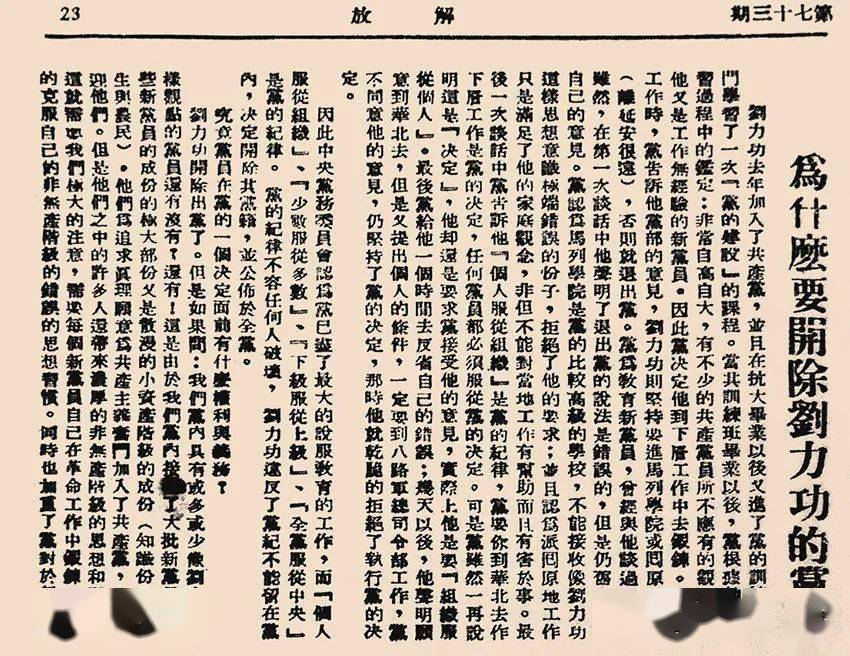 第七十三期
解放
23
為什麼要開除劉力功的黨
劉力功去年加入了共產黨，並且在抗大畢業以後又進了黨的訓
門學習了一次「黨的建設」的課程。當其訓練班畢業以後，黨根據
習過程中的鑑定：非常自高自大，有不少的共產黨員所不應有的觀
他又是工作無經驗的新黨員。因此黨決定他到下層工作中去鍛鍊。
工作時，黨告訴他黨部的意見，劉力功則堅持要進馬列學院或囘原
（離延安很遠），否則就退出黨。黨為教育新黨員，曾經與他談過
雖然，在第一次談話中他聲明了退出黨的說法是錯誤的，但是仍舊
自己的意見。黨認爲馬列學院是黨的比較高級的學校，不能接收像劉力功
這樣思想意識極端錯誤的份子，拒絕了他的要求；並且認爲派囘原地工作
只是滿足了他的家庭觀念，非但不能對當地工作有幫助而且有害於事。最
後一次談話中黨告訴他「個人服從組織」是黨的紀律，黨要你到華北去作
下層工作是黨的決定，任何黨員都必須服從黨的決定。可是黨雖然一再說
明這是「決定」，他却還是要求黨接受他的意見，實際上他是要「組織服
從個人」。最後黨給他一個時間去反省自己的錯誤；幾天以後，他聲明願
意到華北去，但是又提出個人的條件，一定要到八路軍總司令部工作，黨
不同意他的意見，仍堅持了黨的決定，那時他就乾脆的拒絕了執行黨的決
定。
因此中央黨務委員會認爲黨已盡了最大的說服教育的工作，而「個人
服從組織」、「少數服從多數」、「下級服從上級」、「全黨服從中央」
是黨的紀律。黨的紀律不容任何人破壞，劉力功違反了黨紀不能留在黨
內，決定開除其黨籍，並公佈於全黨。
究竟黨員在黨的一個決定面前有什麼權利與義務？
劉力功開除出黨了。但是如果問：我們黨內具有或多或少像劉
樣觀點的黨員還有沒有？還有！這是由於我們黨內接了大批新黨
些新黨員的成份的極大部份又是散漫的小資產階級的成份（知識份
生與農民），他們爲追求眞理願意爲共產主義奮鬥加入了共產黨，
迎他們。但是他們之中的許多人還帶來濃厚的非無產階級的思想和
這就需要我們極大的注意，需要每個新黨員自己在革命工作中鍛鍊
的克服自己的非無產階級的錯誤的思想習慣。同時也加重了黨對於